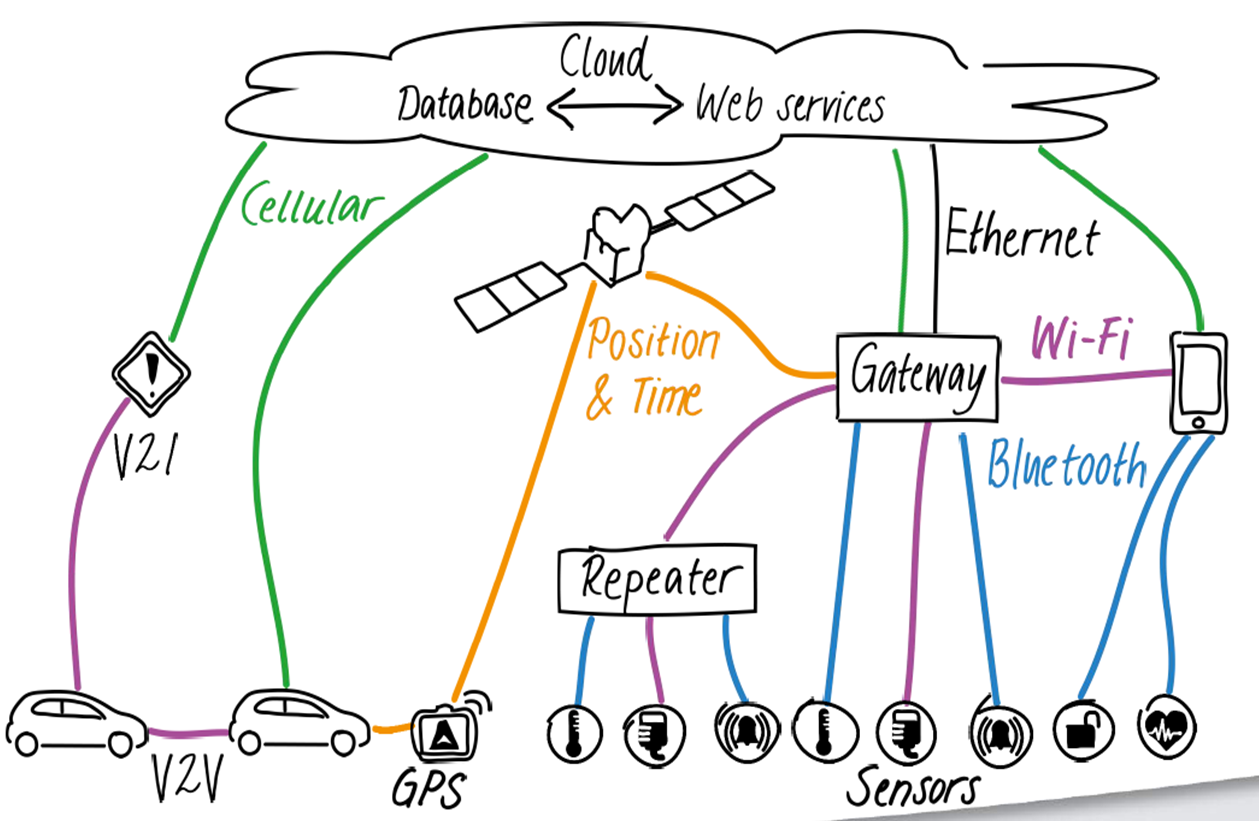 Cloud
Database Web services
Cellular
Ethernet
Position
& Time
Wi-Fi
Gateway
V2I
Bluetooth
Repeater
V2V
GPS
Sensors